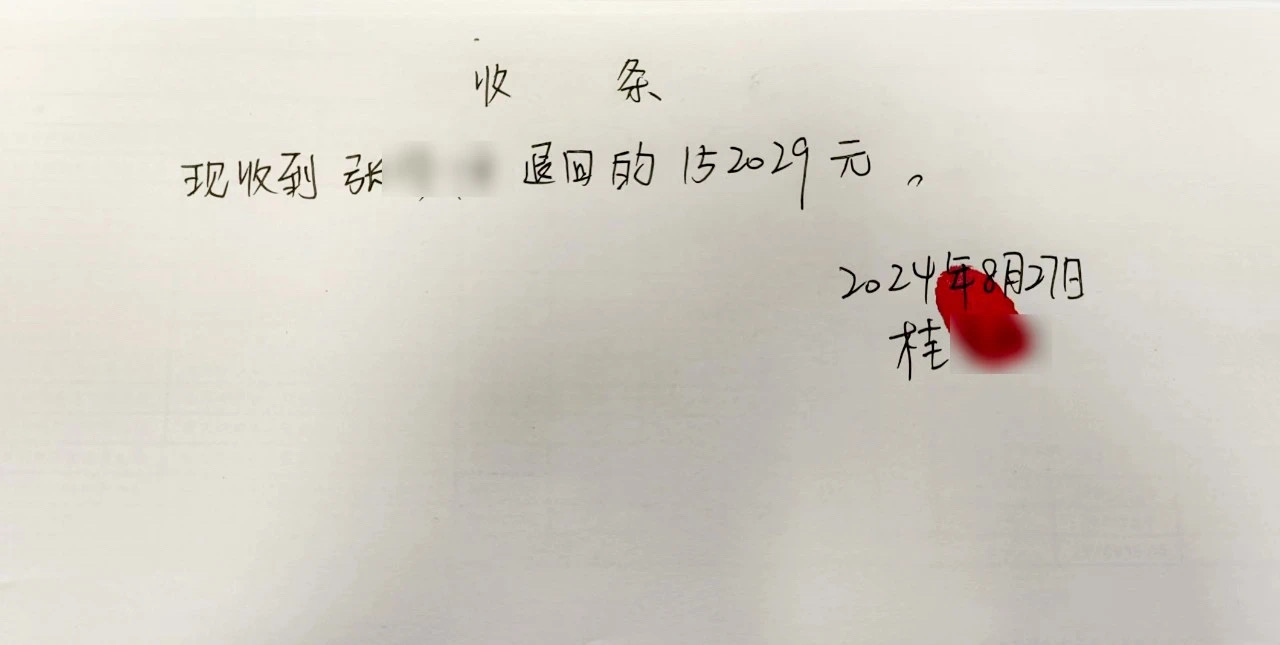 收 条
现收到 张 退回的 152029 元 。
2024年8月27日
桂